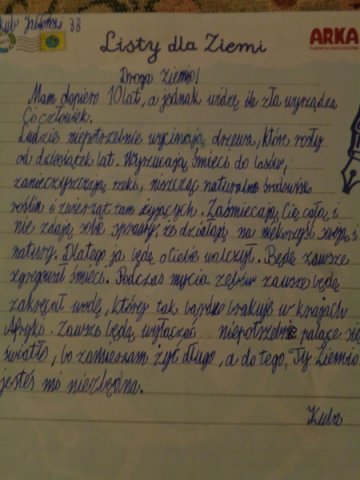 38
ARKA
Listy dla Ziemi
Droga Ziemio!
Mam dopiero 10 lat, a jednak widzę ile zła wyrządza
Ci człowiek.
Ludzie niepotrzebnie wycinają drzewa, które rosły
od dziesiątek lat. Wyrzucają śmieci do lasów,
zanieczyszczają rzeki, niszcząc naturalne środowisko
roślin i zwierząt tam żyjących. Zaśmiecają Cię całą, i
nie zdają sobie sprawy, że działają na niekorzyść swoją i
natury. Dlatego ja będę o Ciebie walczył. Będę zawsze
segregował śmieci. Podczas mycia zębów zawsze będę
zakręcał wodę, której tak bardzo brakuje w krajach
Afryki. Zawsze będę wyłączać niepotrzebne palące się
światło, bo zamierzam żyć długo, a do tego, Ty Ziemio
jesteś mi niezbędna.
Kuba